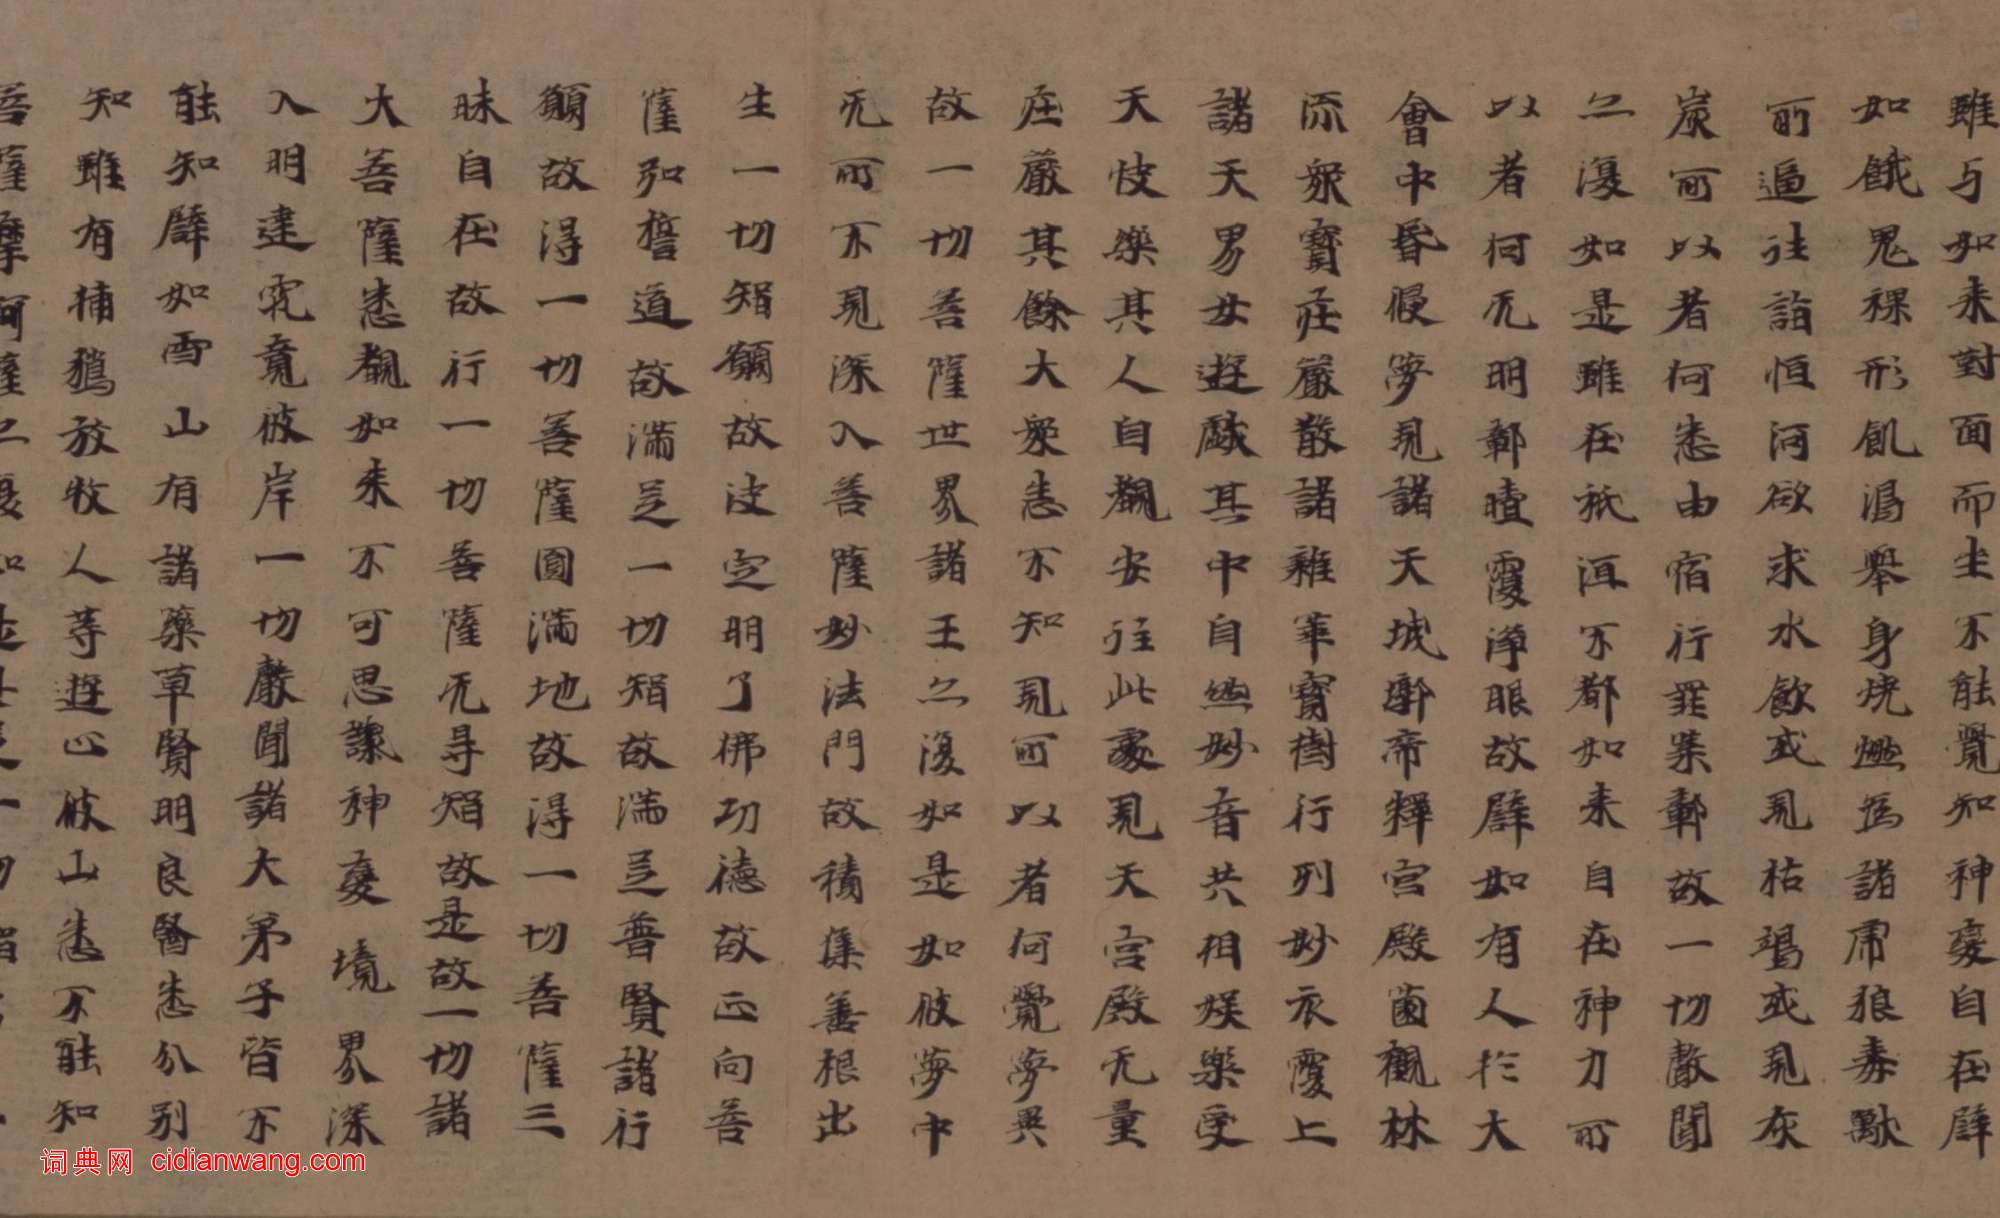 雖与如来對面而坐不能覺知神變自在譬
如餓鬼裸形飢渴舉身燒燃為諸虎狼毒獸
所逼往詣恒河欲求水飲或見枯竭或見灰
炭所以者何悉由宿行罪業鄣故一切聲聞
亦復如是雖在祇洹不都如来自在神力所
以者何无明鄣曀覆淨眼故譬如有人於大
會中昏寑夢見諸天城郭帝釋宮殿園觀林
流眾寶莊嚴散諸雜華寶樹行列妙衣覆上
諸天男女遊戲其中自然妙音共相娛樂受
天快樂其人自覩安住此處見天宮殿无量
莊嚴其餘大眾悉不知見所以者何覺夢異
故一切菩薩世界諸王亦復如是如彼夢中
无所不見深入菩薩妙法門故積集善根出
生一切智願故決定明了佛功德故正向菩
薩弘誓道故滿足一切智故滿足普賢諸行
願故得一切菩薩圓滿地故得一切菩薩三
昧自在故行一切菩薩无㝵智故是故一切諸
大菩薩悉覩如来不可思議神變境界深
入明達究竟彼岸一切聲聞諸大弟子皆不
能知譬如雪山有諸藥草賢明良醫悉分別
知雖有捕獵放牧人等遊止彼山悉不能知
菩薩摩訶薩亦復如是
词典网 cidianwang.com